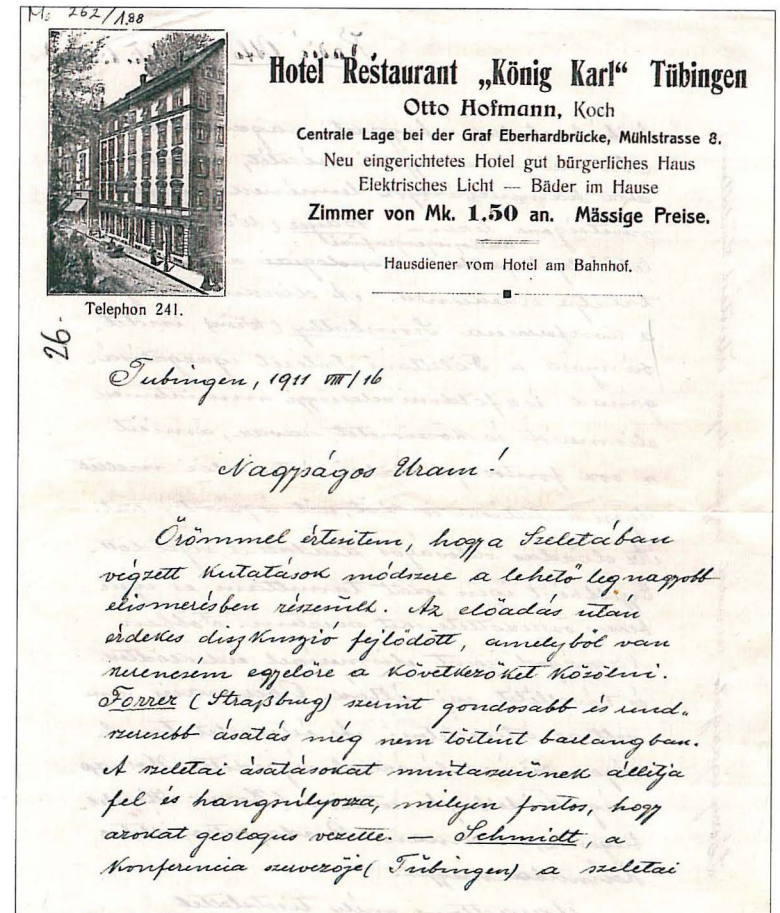 M. 262/188
Hotel Restaurant „König Karl“ Tübingen
Otto Hofmann, Koch
Centrale Lage bei der Graf Eberhardbrücke, Mühlstrasse 8.
Neu eingerichtetes Hotel gut bürgerliches Haus
Elektrisches Licht — Bäder im Hause
Zimmer von Mk. 1.50 an. Mässige Preise.
Hausdiener vom Hotel am Bahnhof.
Telephon 241.
26.
Tübingen, 1911 VIII/16
Nagyságos Uram!
Örömmel értesitem, hogy a Szeletában
végzett kutatások módszere a lehető legnagyobb
elismerésben részesült. Az előadás után
érdekes diszkuszió fejlődött, amelyből van
szerencsém egyelőre a következőket közölni.
Forrer (Straßburg) szerint gondosabb és rend„
szeresebb ásatás még nem történt barlangban.
A szeletai ásatásokat mintaszerünek állitja
fel és hangsúlyozza, milyen fontos, hogy
azokat geologus vezette. — Schmidt, a
Konferencia szervezője (Tübingen) a szeletai